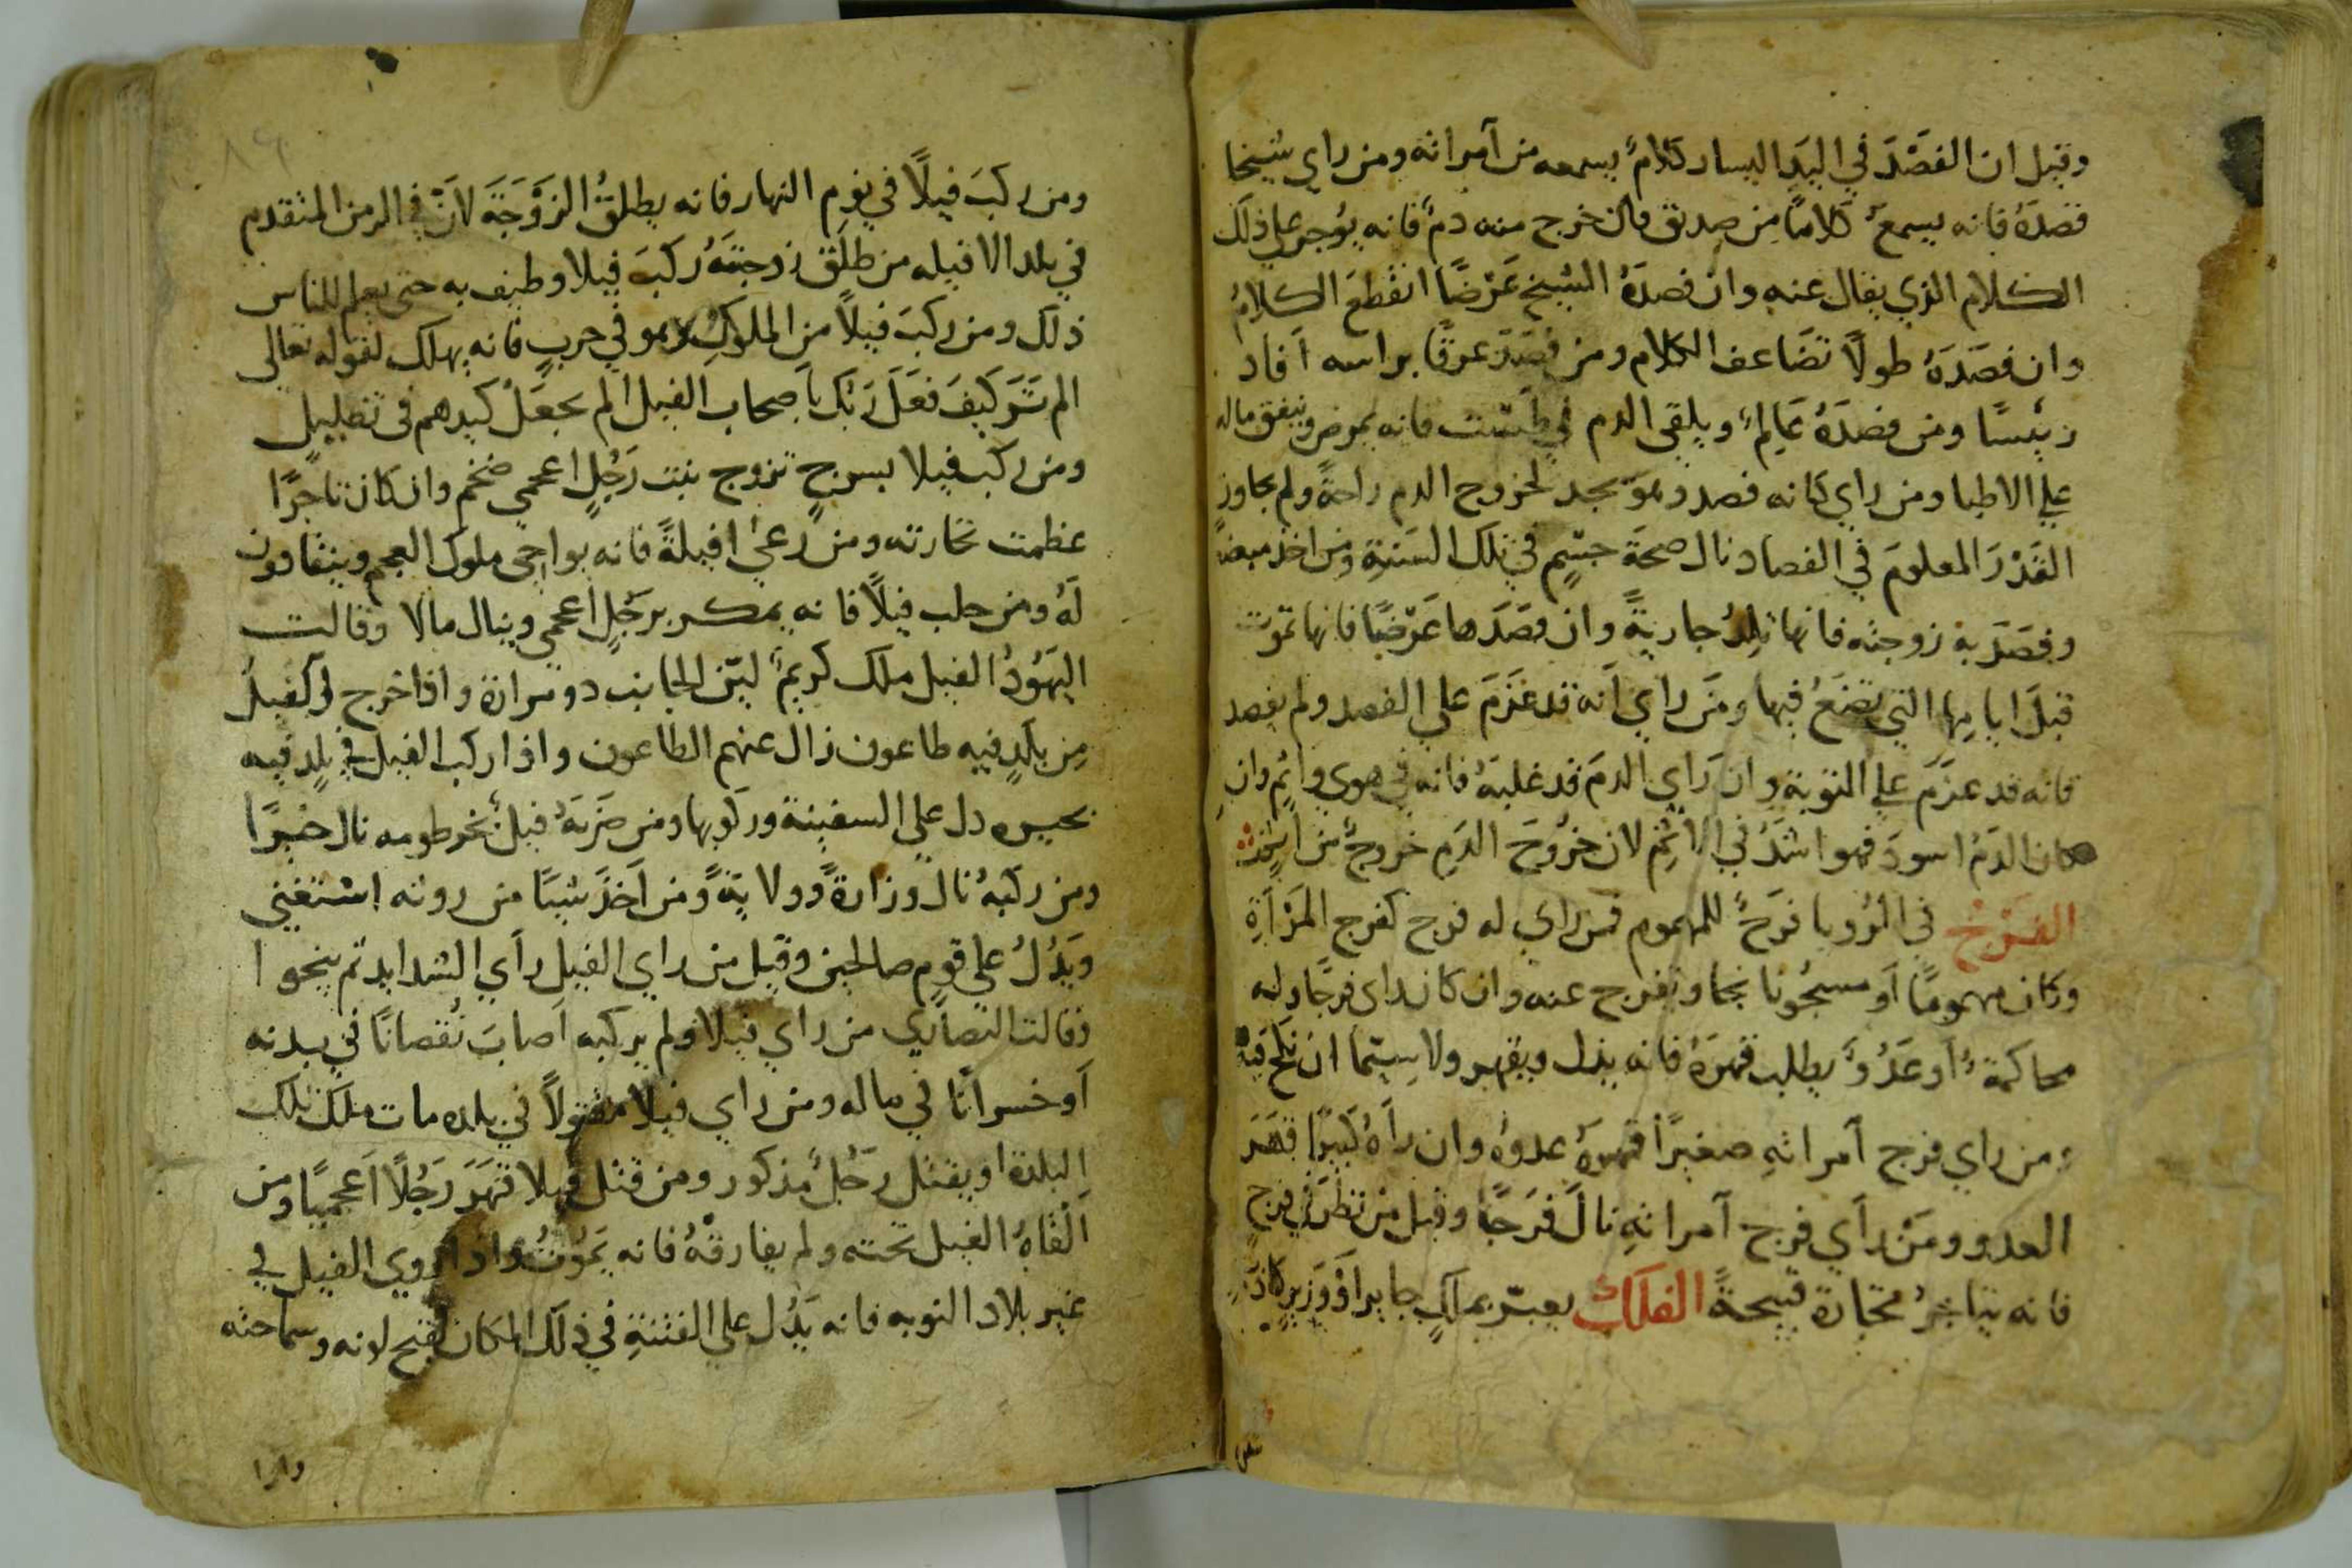 وقيل ان الفصْدَ في اليَدِ اليسار كلامٌ يسمعه من آمراته ومن راي شيخا
فصدَهُ فانه يسمعُ كلامًا مِن صديق فان خرج منه دمٌ فانه يؤجر علي ذلك
الكلام الذي يقال عنه وان فصدَهُ الشيخ عَرْضًا انقطعَ الكلامُ
وان فصَدَهُ طولًا تضَاعف الكلام ومن فصَدَ عرقًا براسه آفاد
رئيسًا ومن فصدَهُ عَالِمٌ ويلقى الدم في طَشت فانه يمرض وينفق ماله
علي الاطبا ومن راي كانه فصد وهو يجد لخروج الدم راحةً ولم يجاوز
القَدْرَ المعلومَ في الفصاد نال صحةَ جسْمٍ في تلك السَنةِ ومن اخذ مبضعًا
وفصَدَ به زوجته فانها تلِدُ جاريةً وان فصَدَها عَرْضًا فانها تموت
قبلَ ايامِها التي تضَعُ فيها ومَن راي آنه قد عَزَمَ علي الفصد ولم يفصد
فانه قد عزَمَ علي التوبة وان رَاي الدمَ قد غلبَهُ فانه في هوي واثمٍ وان
كان الدَمُ اسودَ فهو اشدُ في الاثمِ لان خرُوجَ الدَمِ خروجٌ من اثمٍ
الفَرْجُ في الرُويا فرَجٌ للمهموم فمن راي له فرج كفرج المَرْآةِ
وكان مهمومًا آو مسجُونا نجا وتفرج عنه وان كان راي فرجًا وله
محاكمةٌ آو عَدُوٌّ يطلب قهرَهُ فانه يذل ويقهر ولا سيّما ان نكح فيه
ومن راي فرج آمراتهِ صغيرًا قهرَهُ عدوه وان رآهُ كَبيرًا قهَرَ
العدو ومَنْ رآي فرج آمراتهِ نالَ فَرَجًا وقيل من نظرَ في فرج
فانه يتاجرُ تجارة قبيحةً الفلَكُ يعبّر بملكٍ جايرٍ آوْ وَزيرٍ كاذبٍ
ومن ركبَ فيلًا في نومِ النهار فانه يطلقُ الزَوْجَةَ لانَ في الزمن المتقدم
في بلد الافيله من طلَق زوجتَهُ ركبَ فيلا وطيف به حتى يعلم للناس
ذلك ومن ركبَ فيلاً من الملوكِ وهو في حربٍ فانه يهلك لقوله تعالى
الم تَرَ كَيفَ فعَلَ رَبُك بآصحاب الفيل آلم يجعَلْ كيدهم في تضليلٍ
ومن ركبَ فيلا بسرجٍ تزوج بنت رَجُلٍ اعجمي ضخم وان كان تاجرًا
عظمت تجارته ومن رعىٰ افيلةً فانه يواجي ملوك العجم وينقادون
لَهُ ومن حلب فيلًا فانه يمكر برَجُلٍ اعجمي وينال مالا وقالت
اليَهُودُ الفيل ملك كريمٌ ليّن الجانب ذو مرارة واذا خرج الفيل
مِن بلَدٍ فيه طاعون زال عنهم الطاعون واذا ركب الفيل في بلدٍ فيه
بحيره دل علي السفينة وركوبها ومن ضَرَبَهُ فيل بخرطومه نال خيرًا
ومن ركبهُ نال وزارةً وولايةً ومن آخَذَ شيئًا من روثه استغنى
ويَدُلُ علي قومٍ صالحين وقيل من راي الفيل رآي الشدايد ثم ينجو ا
وقالت النصارَي من راي فيلا ولم يركبه آصابَ نُقصانًا في بدنه
آو خسرانًا في ماله ومن راي فيلا مقتولاً في بلده مات ملك تلك
البلدة او يقتل رَجُلٌ مذكور ومن قتل فيلا قهَرَ رَجُلًا آعجميًا ومن
آلقاهُ الفيل تحته ولم يفارقْهُ فانه يَمُوتُ واذا رُوي الفيل في
غير بلاد النوبه فانه يَدُل علي الفتنةِ في ذلك المكان لقبح لونه وسماجته